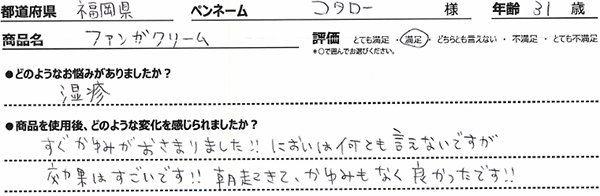 都道府県 福岡県 ペンネーム コタロー 様 年齢 31 歳
商品名 ファンガクリーム 評価 とても満足 ・ 満足 ・ どちらとも言えない ・ 不満足 ・ とても不満足
*○で囲んでお選びください。
●どのようなお悩みがありましたか?
湿疹
●商品を使用後、どのような変化を感じられましたか?
すぐかゆみがおさまりました!! においは何とも言えないですが
効果はすごいです!! 朝起きて、かゆみもなく良かったです!!